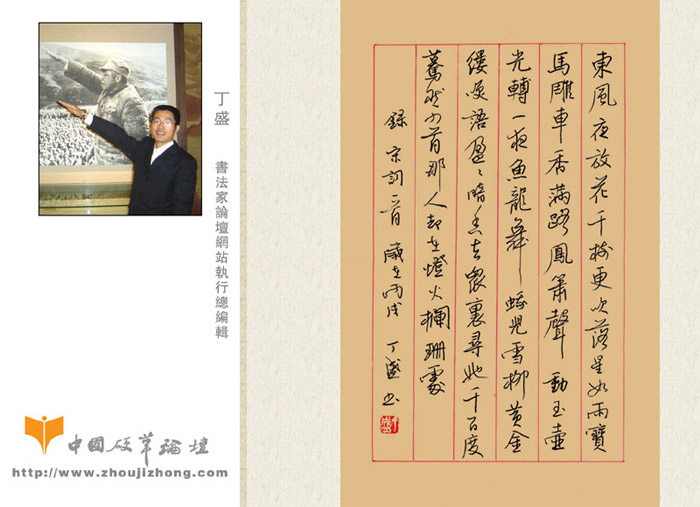 丁盛 書法家論壇網站執行總編輯
中國硬筆論壇
http://www.zhoujizhong.com
東風夜放花千樹更吹落星如雨寶
馬雕車香滿路鳳簫聲動玉壺
光轉一夜魚龍舞蛾兒雪柳黃金
縷咲語盈〻暗香去眾裏尋她千百度
驀然回首那人却在燈火欄珊處
錄宋詞一首歲在丙戌丁盛书